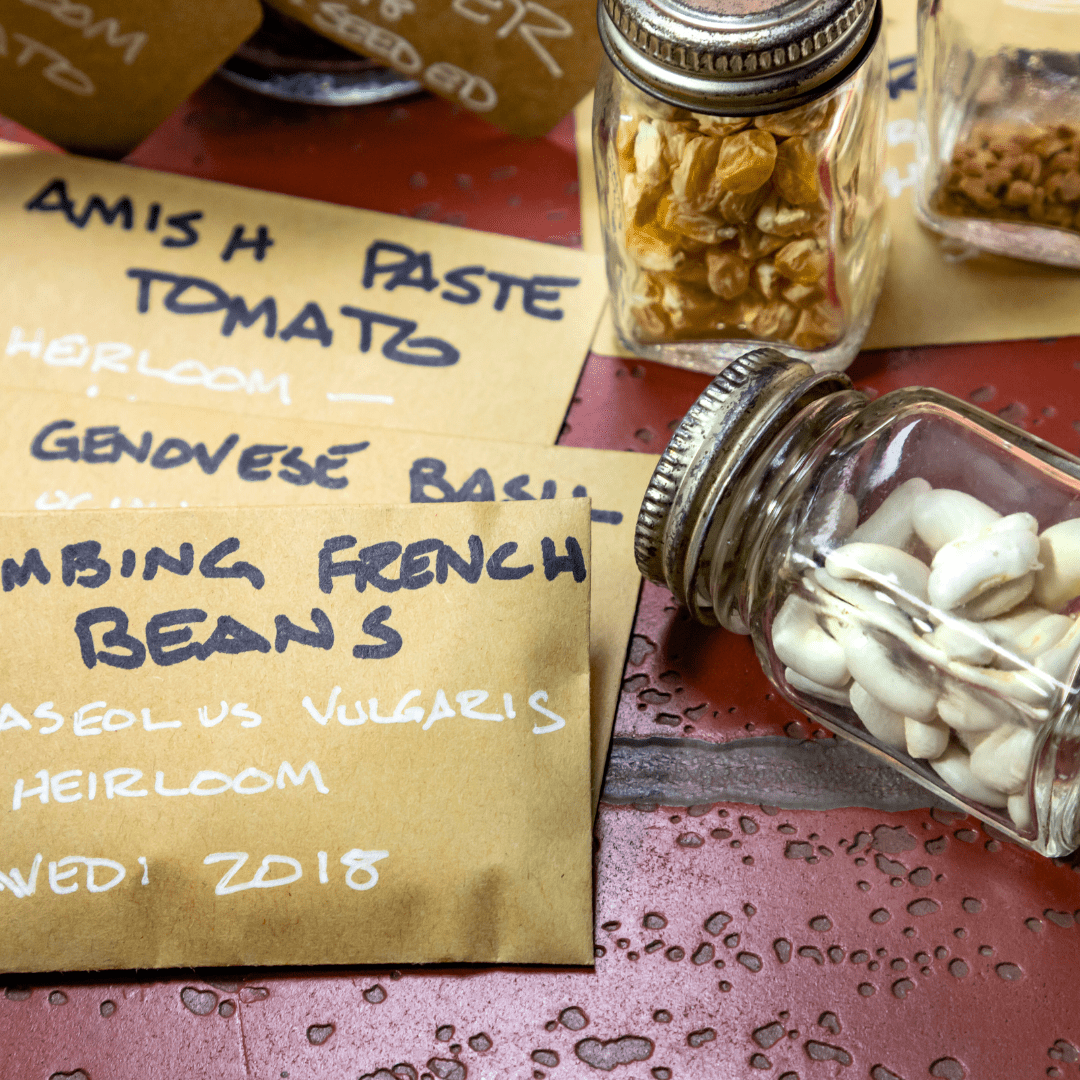 OOM
ATO
ER
SEEDED
AMISH PASTE
TOMATO
HEIRLOOM —
GENOVESE BASIL
MBING FRENCH
BEANS
ASEOLUS VULGARIS
HEIRLOOM
WEDI 2018